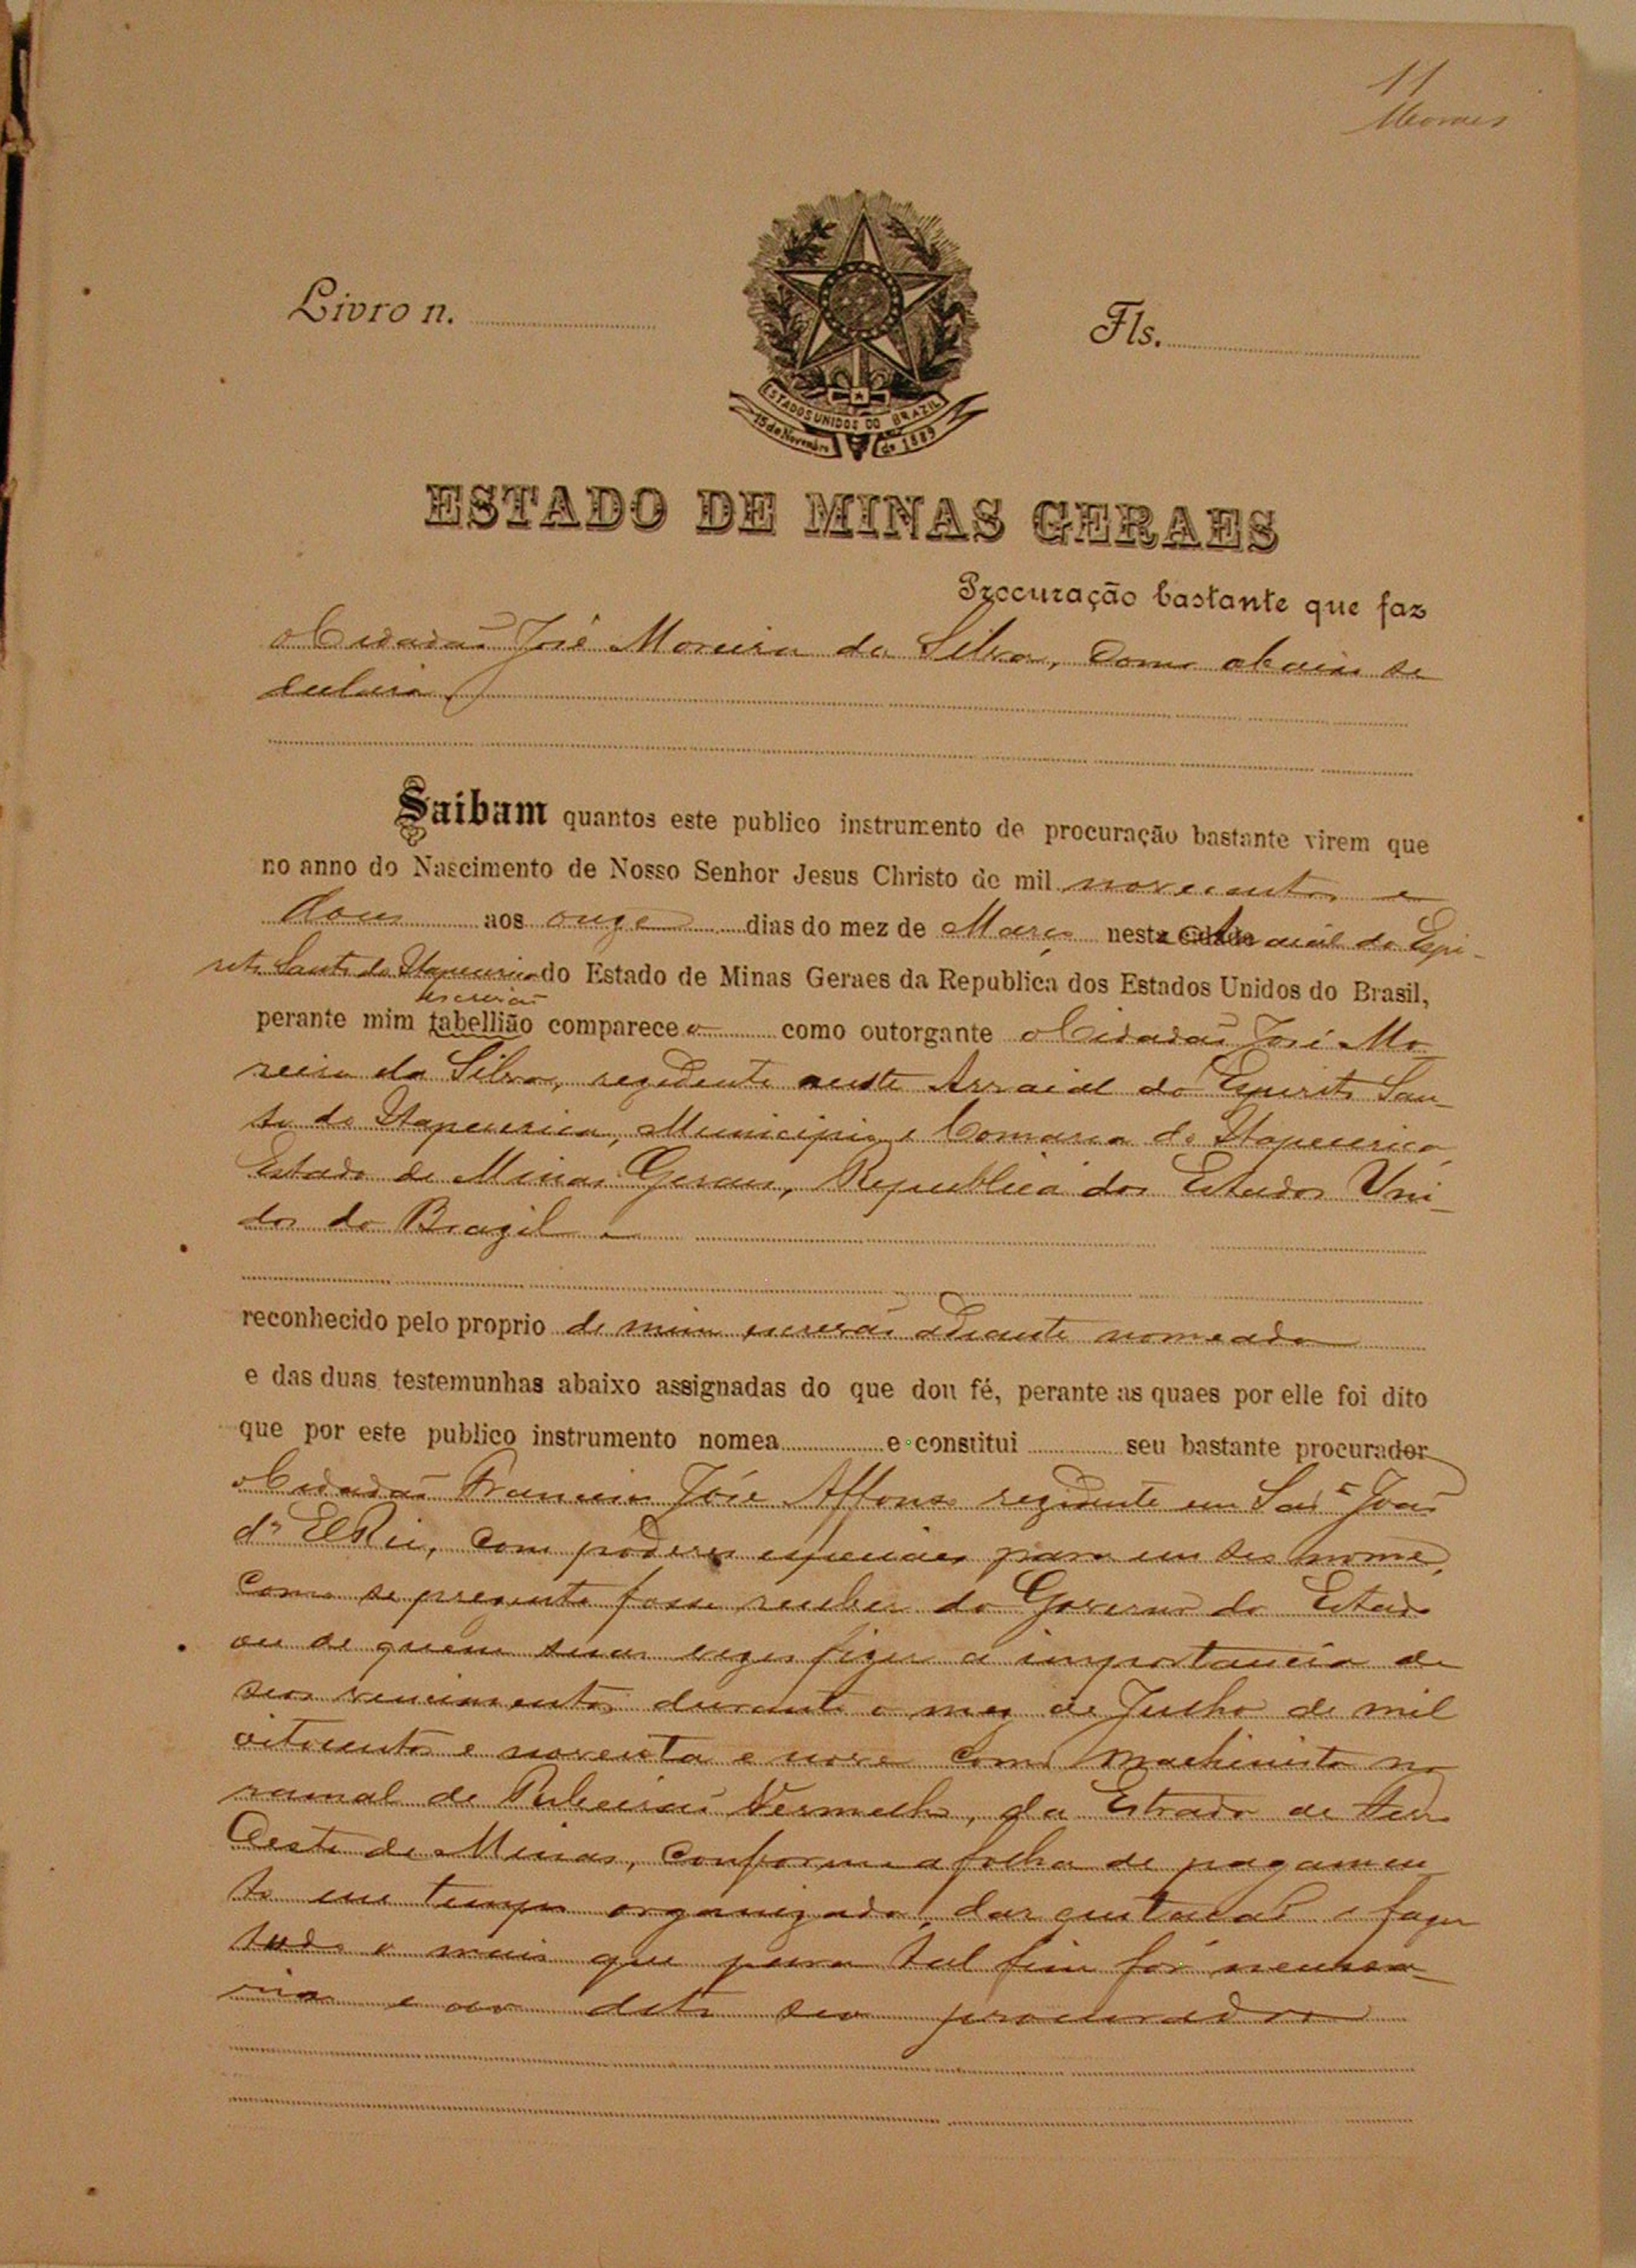 11
Moraes
Livro n.
Fls.
ESTADOS UNIDOS DO BRAZIL
15 de Novembro de 1889
ESTADO DE MINAS GERAES
Procuração bastante que faz
o Cidadaõ José Moreira da Silva, como abaixo se
declara
Saibam quantos este publico instrumento de procuração bastante virem que
no anno do Nascimento de Nosso Senhor Jesus Christo de mil novecentos e
dous aos onze dias do mez de Março nesta cidade Arraial do Espi-
rito Santo de Itapecerica do Estado de Minas Geraes da Republica dos Estados Unidos do Brasil,
escrivaõ
perante mim tabellião comparece o como outorgante o Cidadaõ José Mo
reira da Silva, rezidente neste Arraial do Espirito San-
to de Itapecerica, Municipio e Comarca de Itapecerica
Estado de Minas Geraes, Republica dos Estados Uni-
dos do Brazil
reconhecido pelo proprio de mim escrivaõ adiante nomeado
e das duas testemunhas abaixo assignadas do que dou fé, perante as quaes por elle foi dito
que por este publico instrumento nomea e constitui seu bastante procurador
o Cidadaõ Francisco José Affonso rezidente em Saõ Joaõ
d'El Rei, com poderes especiaes para em seo nome,
como se prezente fosse receber do Governo do Estado
ou de quem suas vezes fizer a importancia de
seos vencimentos durante o mez de Julho de mil
oitocentos e noventa e nove como machinista no
ramal de Ribeiraõ Vermelho, da Estrada de Ferro
Oeste de Minas, conforme a folha de pagamen
to em tempo organizada, dar quitaçaõ e fazer
tudo o mais que para tal fim for necessa-
rio e ao dito seo procurador